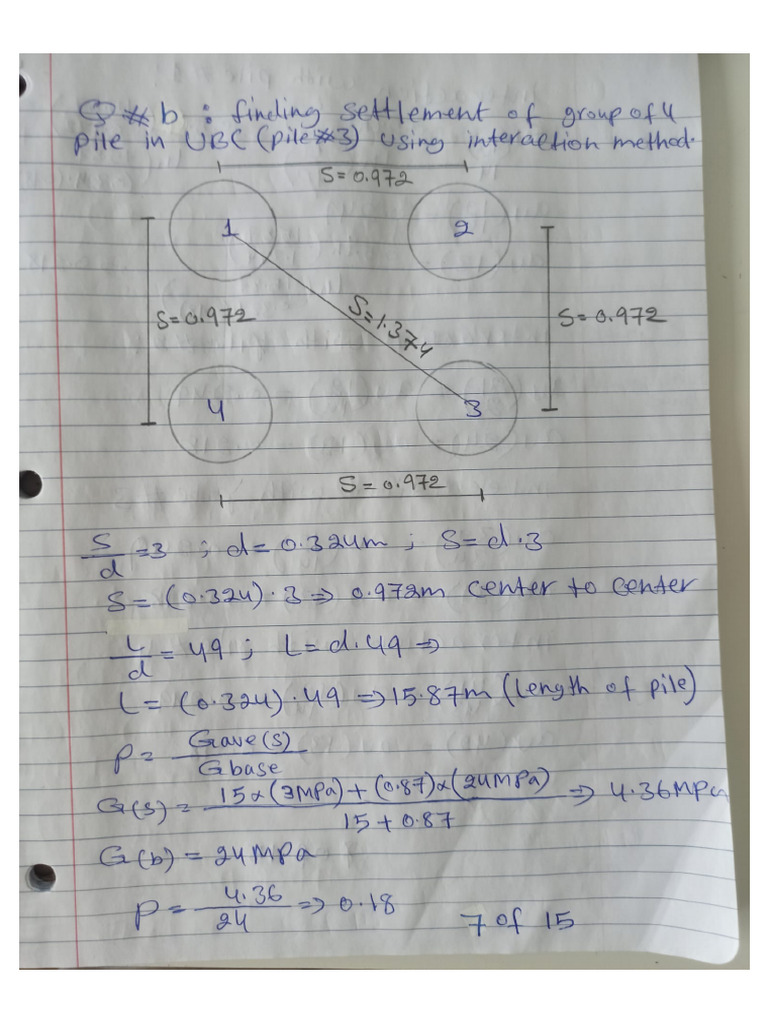 Q # b : finding settlement of group of 4
pile in UBC (pile#3) using interaction method.
S=0.972
1
2
S=0.972
S=1.374
S=0.972
4
3
S=0.972
S/d =3 ; d=0.324m ; S=d·3
S=(0.324)·3⇒0.972m center to center
L/d = 49 ; L=d·49 ⇒
L=(0.324)·49⇒15.87m (Length of pile)
ρ= Gave(s)/Gbase
G(s)= 15×(3MPa)+(0.87)×(24MPa)/15+0.87 ⇒ 4.36MPa
G(b)=24MPa
ρ= 4.36/24 ⇒ 0.18
7 of 15